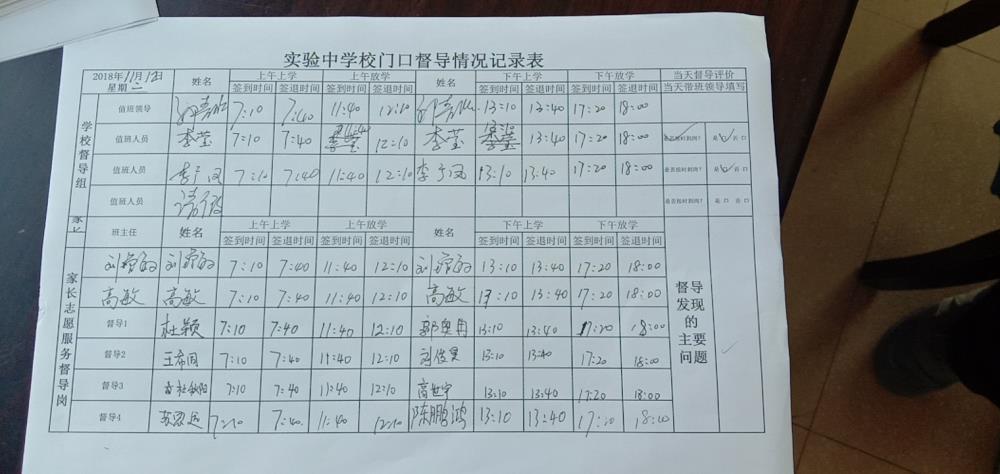 实验中学校门口督导情况记录表
2018年11月1日 姓名 上午上学 上午放学 姓名 下午上学 下午放学 当天督导评价
星期 签到时间 签退时间 签到时间 签退时间 签到时间 签退时间 签到时间 签退时间 当天带班领导填写
学校督导组
值班领导 7:10 7:40 11:40 12:10 13:10 13:40 17:20 18:00
值班人员 李莹 7:10 7:40 11:40 12:10 李莹 13:10 13:40 17:20 18:00 是否按时到岗? 是 否
值班人员 7:10 7:40 11:40 12:10 13:10 13:40 17:20 18:00 是否按时到岗? 是 否
值班人员 请假 是否按时到岗? 是 否
家长
班主任 姓名 上午上学 上午放学 姓名 下午上学 下午放学
签到时间 签退时间 签到时间 签退时间 签到时间 签退时间 签到时间 签退时间
家长志愿服务督导岗
7:10 7:40 11:40 12:10 13:10 13:40 17:20 18:00
高敏 高敏 7:10 7:40 11:40 12:10 高敏 13:10 13:40 17:20 18:00
督导1 杜颖 7:10 7:40 11:40 12:10 13:10 13:40 17:20 18:00
督导2 7:10 7:40 11:40 12:10 13:10 13:40 17:20 18:00
督导3 7:10 7:40 11:40 12:10 高世宇 13:10 13:40 17:20 18:00
督导4 7:10 7:40 11:40 12:10 陈鹏鸿 13:10 13:40 17:20 18:00
督导
发现
的
主要
问题